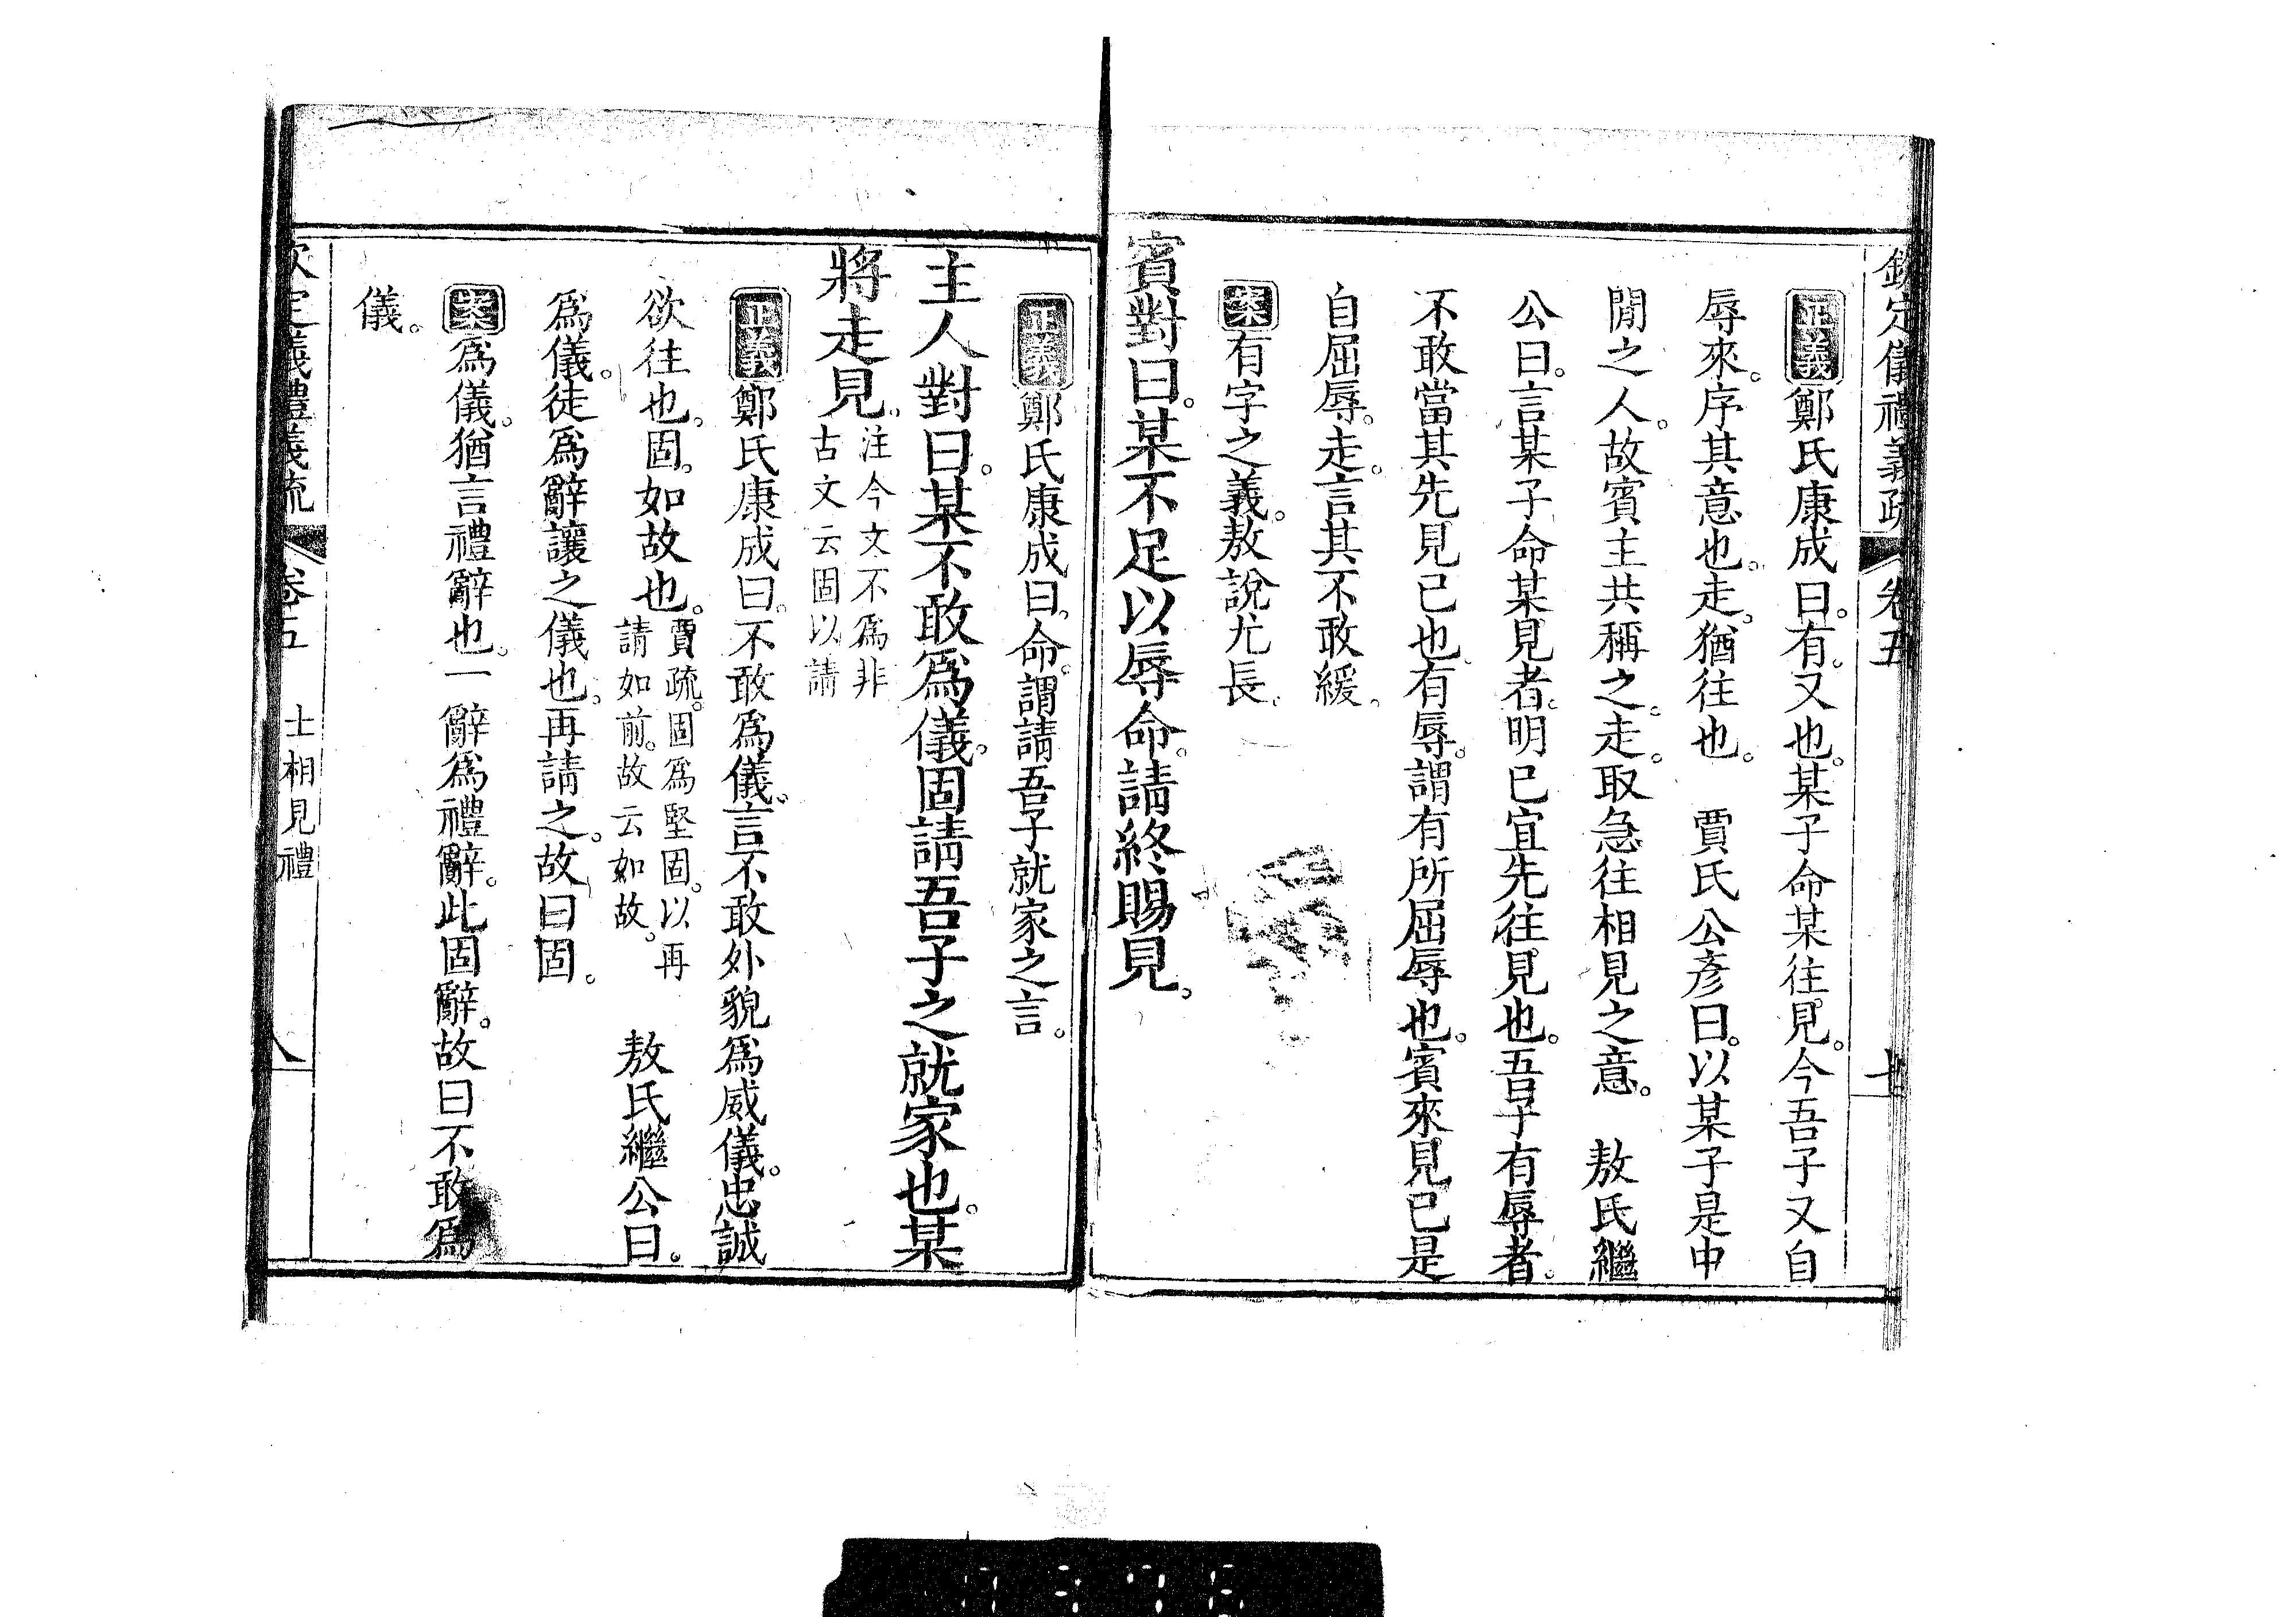 欽定儀禮義疏 卷五 七
正義鄭氏康成曰。有。又也。某子命某往見。今吾子又自
辱來。序其意也。走。猶往也。 賈氏公彥曰。以某子是中
閒之人。故賓主共稱之。走。取急往相見之意。 敖氏繼
公曰。言某子命某見者。明已宜先往見也。吾子有辱者。
不敢當其先見已也。有辱。謂有所屈辱也。賓來見已是
自屈辱。走。言其不敢緩。
案有字之義。敖說尤長。
賓對曰。某不足以辱命。請終賜見。
正義鄭氏康成曰。命。謂請吾子就家之言。
主人對曰。某不敢爲儀。固請吾子之就家也。某
將走見。注今文不爲非
古文云固以請
正義鄭氏康成曰。不敢爲儀。言不敢外貌爲威儀。忠誠
欲往也。固。如故也。賈疏。固爲堅固。以再
請如前。故云如故。 敖氏繼公曰。
爲儀。徒爲辭讓之儀也。再請之。故曰固。
案爲儀。猶言禮辭也。一辭爲禮辭。此固辭。故曰不敢爲
儀。
欽定儀禮義疏 卷五 士相見禮 八